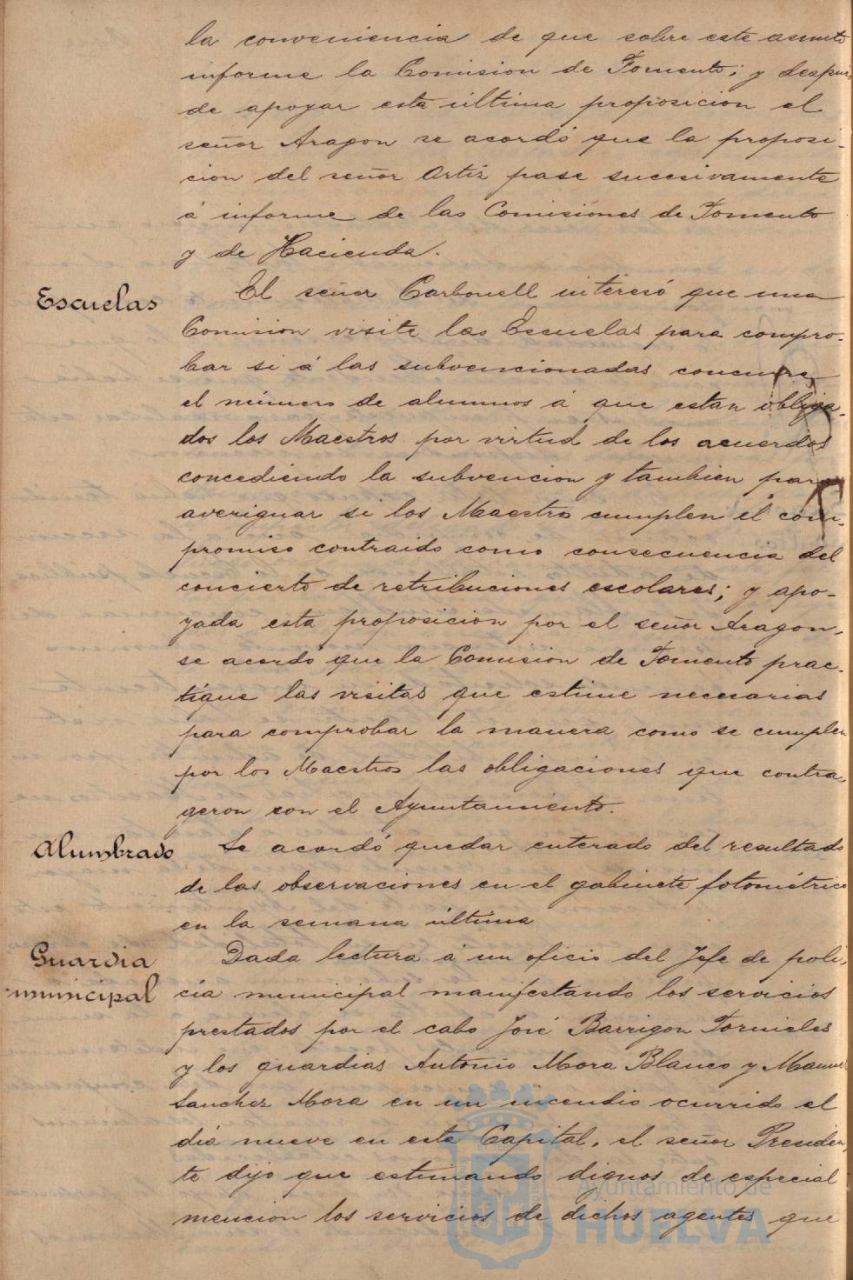 la conveniencia de que sobre este asunto
informe la Comision de Fomento; y despues
de apoyar esta última proposicion el
señor Aragon se acordó que la proposi-
cion del señor Ortiz pase sucesivamente
á informe de las Comisiones de Fomento
y de Hacienda.
Escuelas
El señor Carbonell interesó que una
Comision visite las Escuelas para compro-
bar si á las subvencionadas concurre
el número de alumnos á que estan obliga-
dos los Maestros por virtud de los acuerdos
concediendo la subvencion y tambien para
averiguar si los Maestros cumplen el com-
promiso contraido como consecuencia del
concierto de retribuciones escolares; y apo-
yada esta proposicion por el señor Aragon,
se acordó que la Comision de Fomento prac-
tique las visitas que estime necesarias
para comprobar la manera como se cumplen
por los Maestros las obligaciones que contra-
geron con el Ayuntamiento.
Alumbrado
Se acordó quedar enterado del resultado
de las observaciones en el gabinete fotométrico
en la semana última
Guardia
municipal
Dada lectura á un oficio del Jefe de poli-
cía municipal manifestando los servicios
prestados por el cabo José Barrigon Tornieles
y los guardias Antonio Mora Blanco y Manuel
Sanchez Mora en un incendio ocurrido el
dia nueve en esta Capital, el señor Presiden-
te dijo que estimando dignos de especial
mencion los servicios de dichos agentes que
Ayuntamiento de
HUELVA